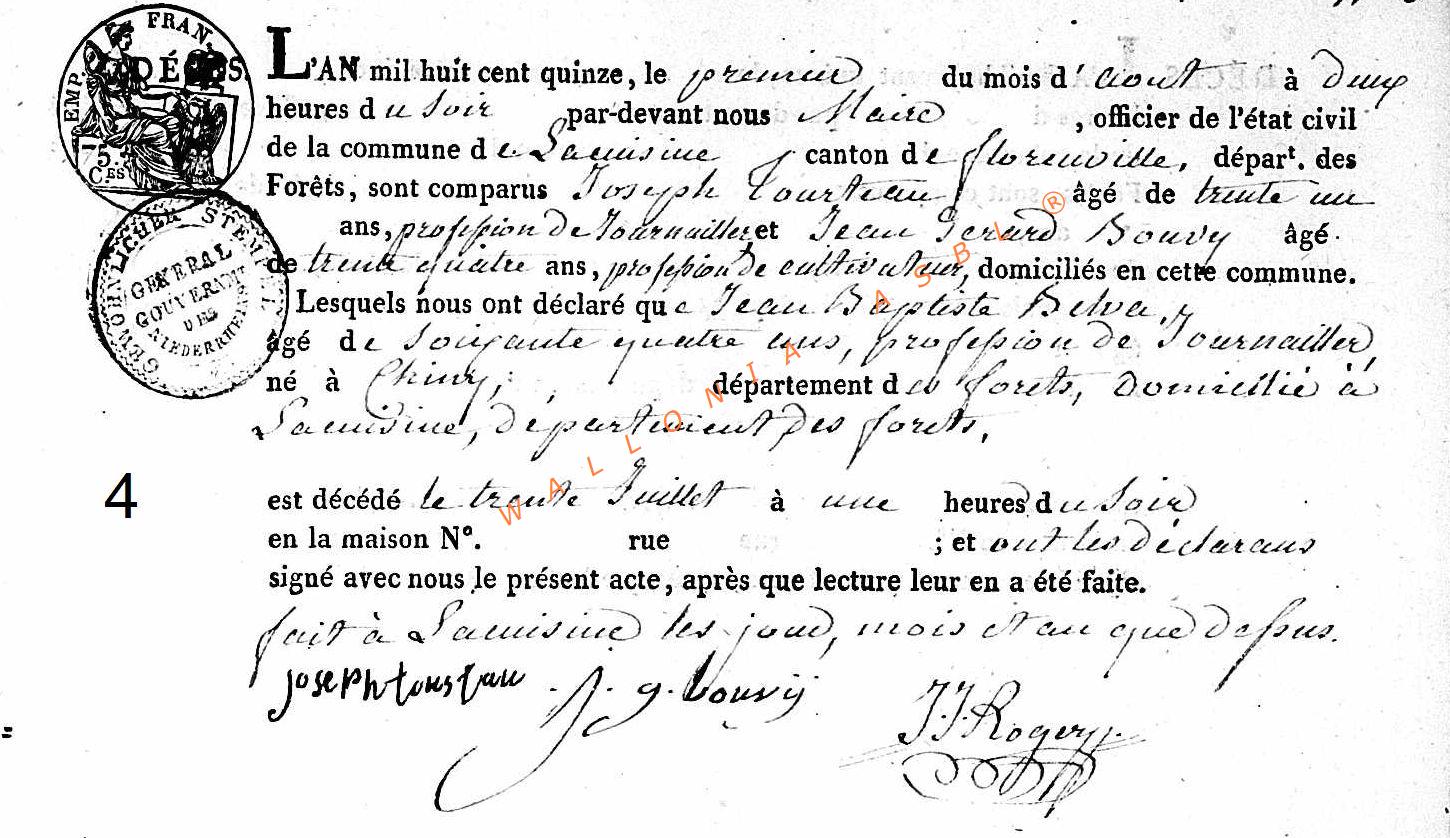 EMP. FRAN.
DÉCÈS.
75.
C.ES
GEWOHNLICHER STEMPEL
GENERAL
GOUVERNMT
DES
NIEDERRHEINS
L'AN mil huit cent quinze, le premier du mois d'aout à deux
heures du soir par-devant nous Maire, officier de l'état civil
de la commune de Lacuisine canton de florenville, départ. des
Forêts, sont comparus Joseph Tourteau âgé de trente un
ans, profession de Journaillier, et Jean Gerard Bouvy âgé
de trente quatre ans, profession de cultivateur, domiciliés en cette commune.
Lesquels nous ont déclaré que Jean Baptiste Belva,
âgé de soixante quatre ans, profession de Journaillier,
né à Chiny, département des forets, Domicilié à
Lacuisine, département des forets,
4
est décédé le trente Juillet à une heures du soir
en la maison N°. rue ; et ont les déclarans
signé avec nous le présent acte, après que lecture leur en a été faite.
fait à Lacuisine les jour, mois et an que dessus.
Joseph tourtau J. g. bouvÿ J.J. Rogery
WALLONIA ASBL ®